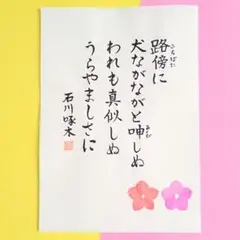 路傍に
犬ながながと呻しぬ
われも真似しぬ
うらやましさに
石川啄木